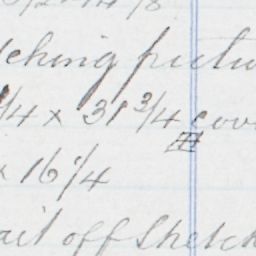 tching pictu
1/4 x 31 3/4 cov
x 16 1/4
ail off Sketch